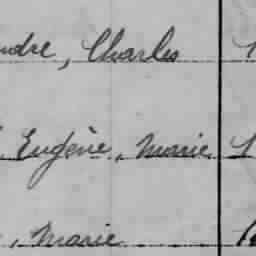 ndre, Charles
Eugène, Marie
, Marie